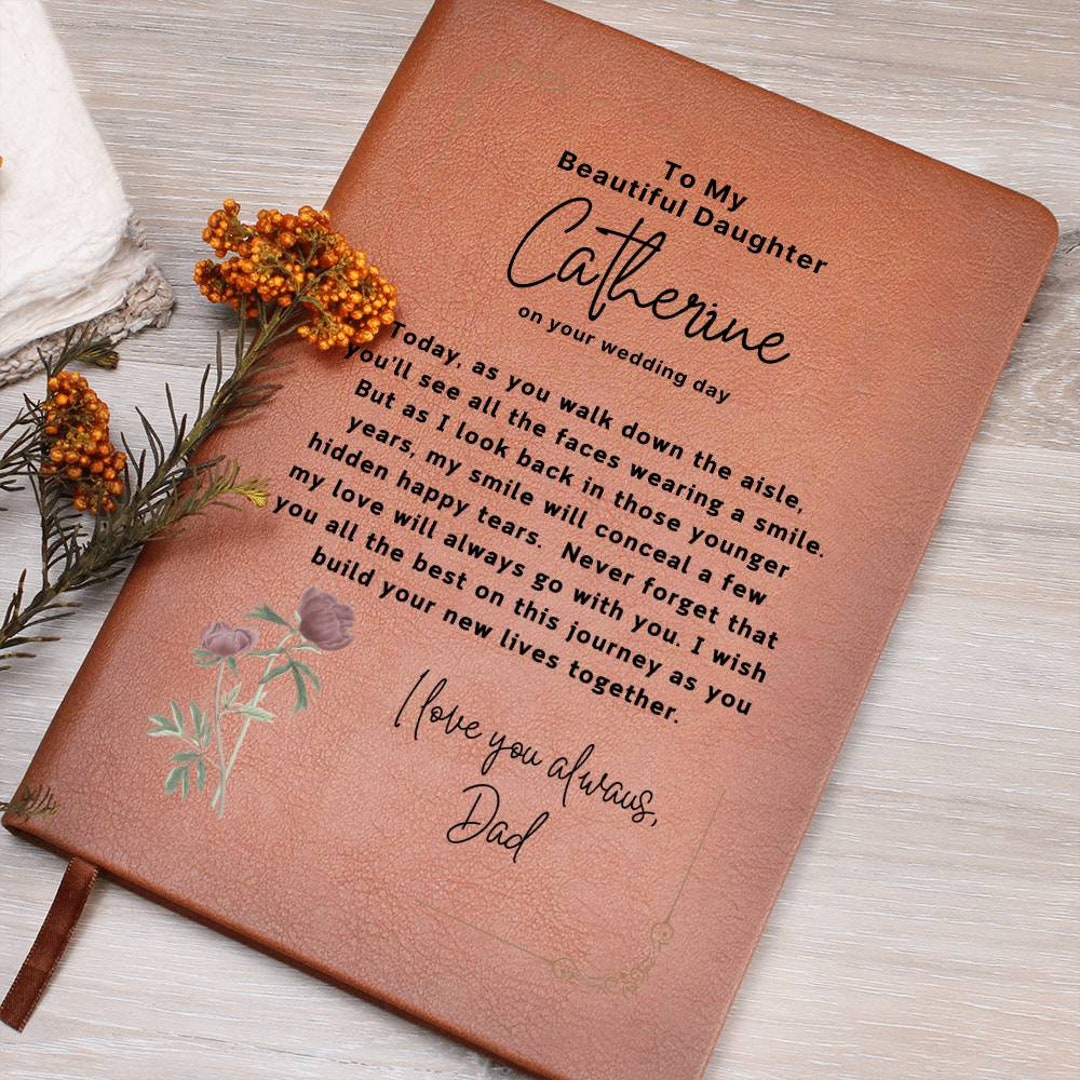 To My
Beautiful Daughter
Catherine
on your wedding day
Today, as you walk down the aisle,
you'll see all the faces wearing a smile.
But as I look back in those younger
years, my smile will conceal a few
hidden happy tears. Never forget that
my love will always go with you. I wish
you all the best on this journey as you
build your new lives together.
I love you always,
Dad